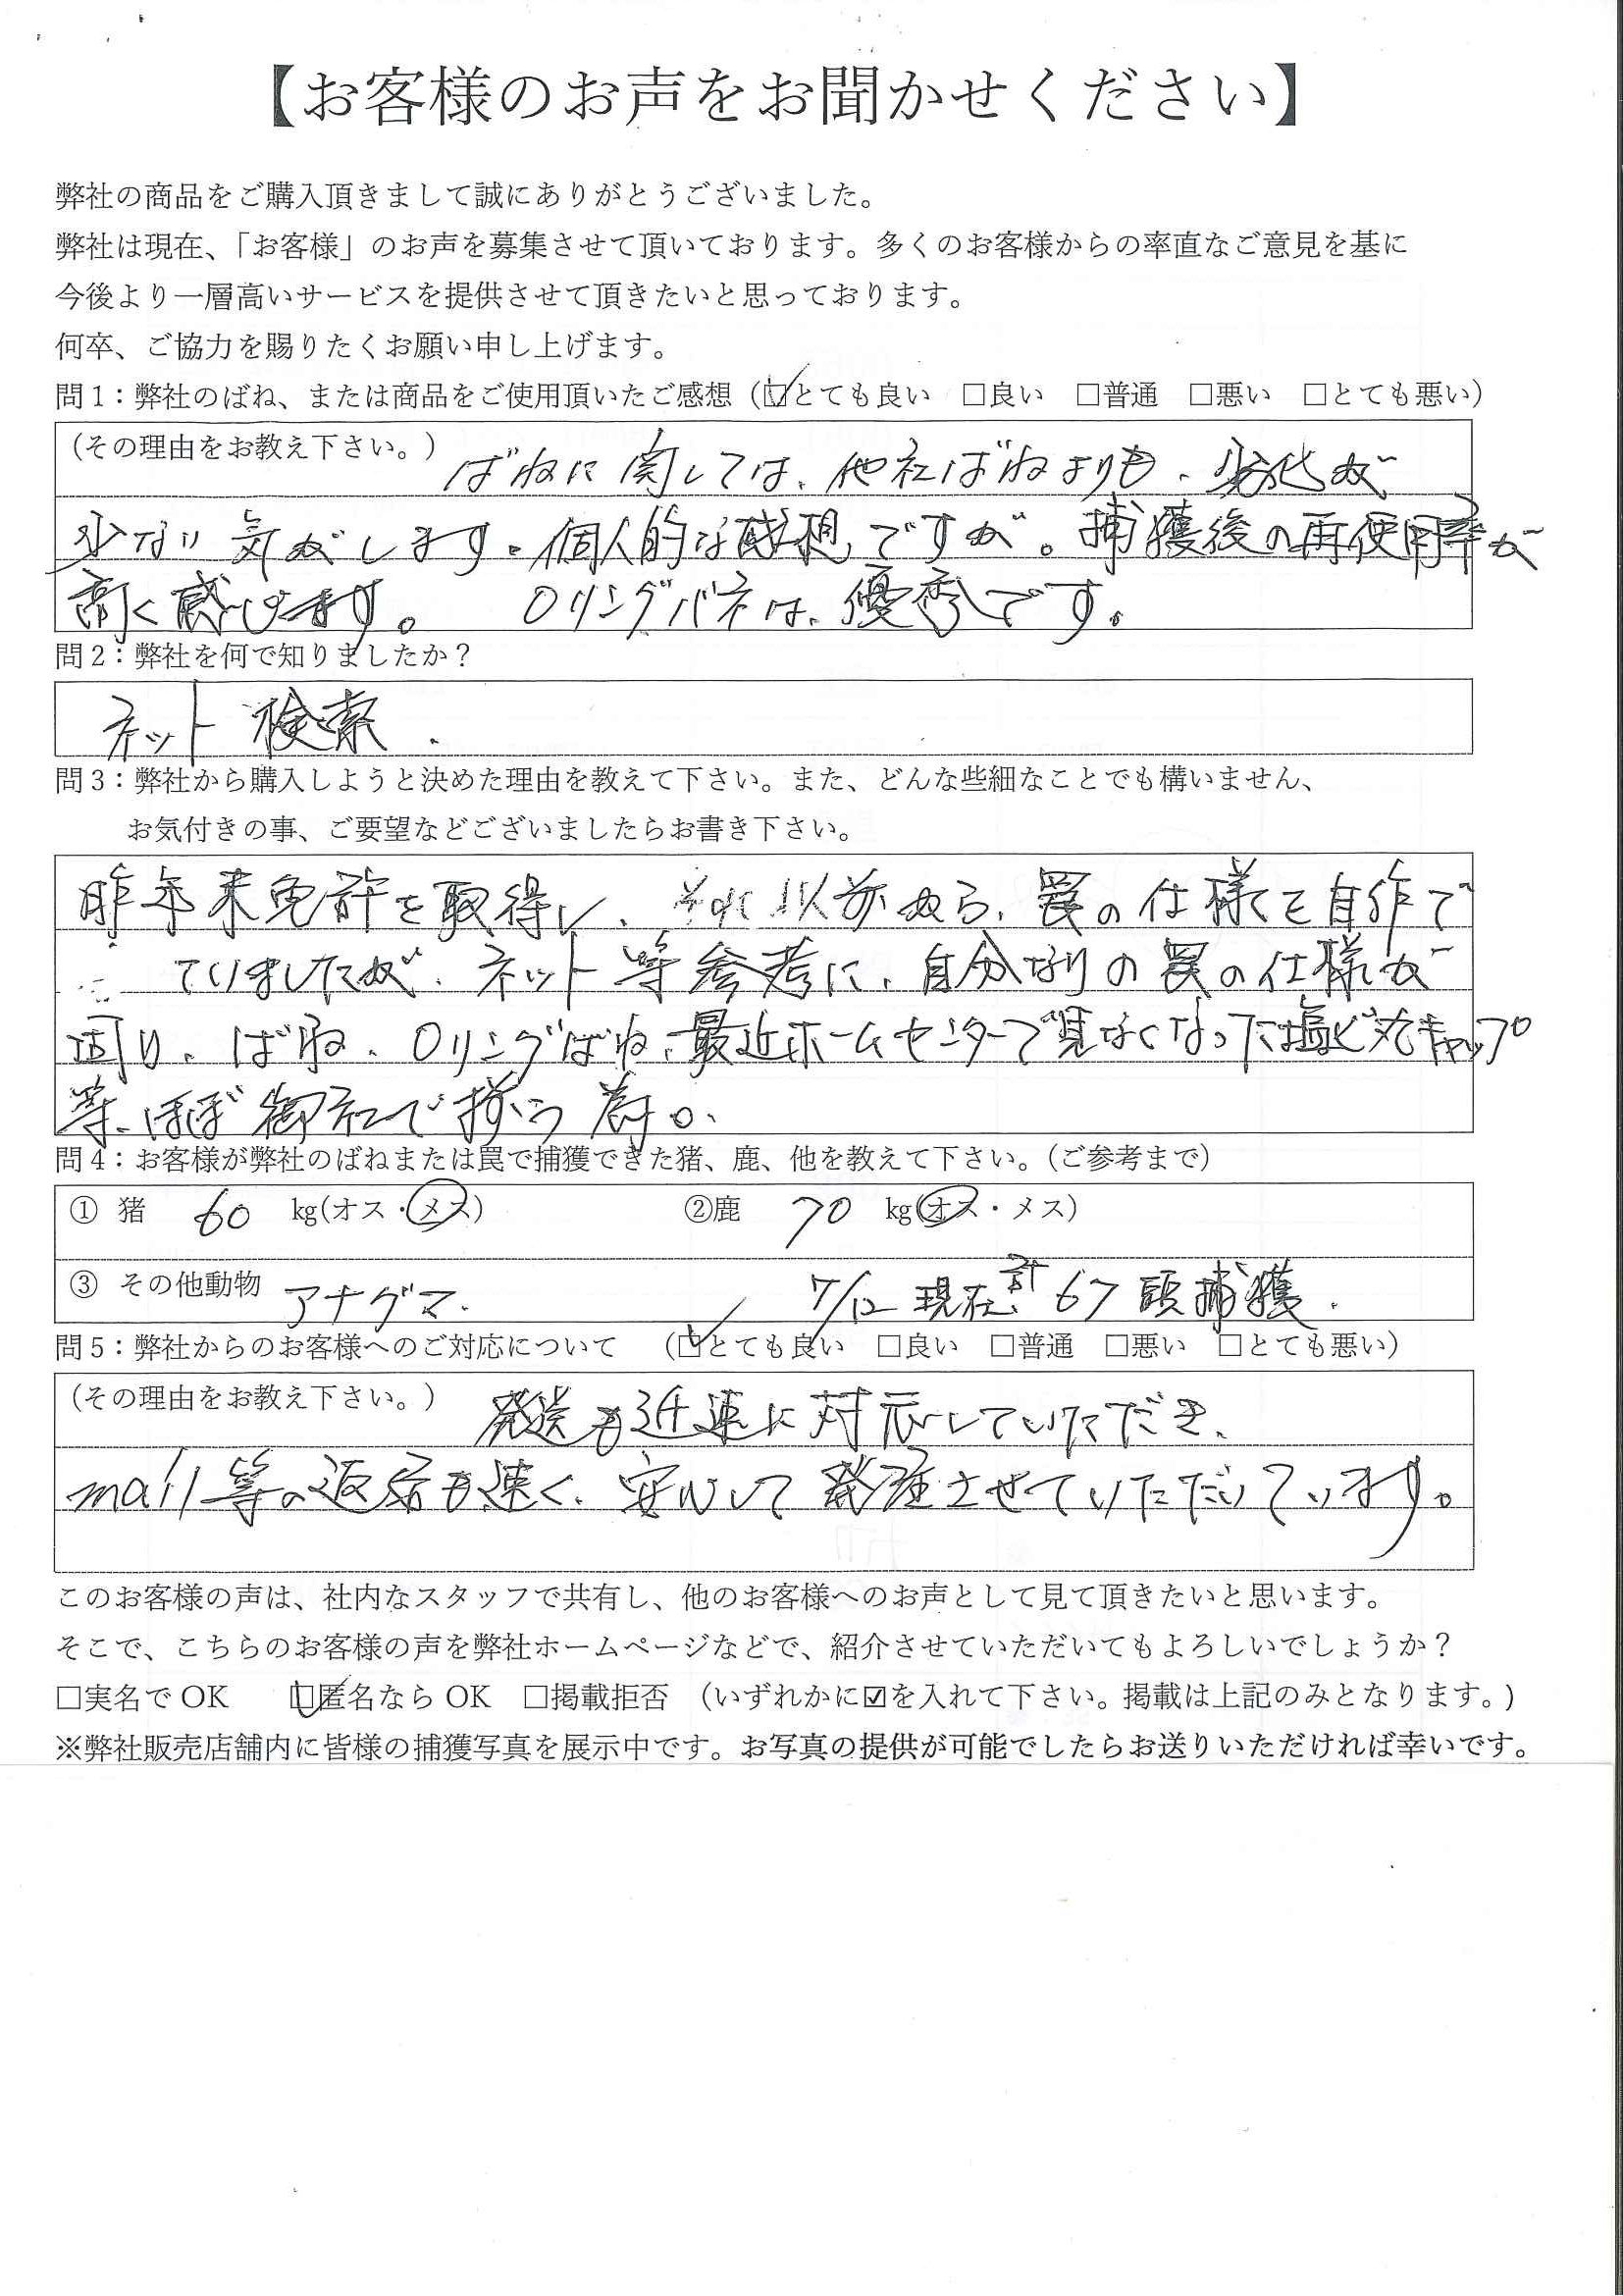 【お客様のお声をお聞かせください】
弊社の商品をご購入頂きまして誠にありがとうございました。
弊社は現在、「お客様」のお声を募集させて頂いております。多くのお客様からの率直なご意見を基に
今後より一層高いサービスを提供させて頂きたいと思っております。
何卒、ご協力を賜りたくお願い申し上げます。
問1：弊社のばね、または商品をご使用頂いたご感想（☑とても良い □良い □普通 □悪い □とても悪い）
（その理由をお教え下さい。） ばねに関しては、他社ばねよりも、劣化が
少ない気がします。個人的な感想ですが。捕獲後の再使用率が
高く感じます。 Oリングバネは、優秀です。
問2：弊社を何で知りましたか？
ネット検索.
問3：弊社から購入しようと決めた理由を教えて下さい。また、どんな些細なことでも構いません、
お気付きの事、ご要望などございましたらお書き下さい。
昨年末免許を取得し、それ以前から、罠の仕様を自作で
ていましたが、ネット等参考に、自分なりの罠の仕様が
固り、ばね、Oリングばね、最近ホームセンターで見なくなった塩ビ丸キャップ
等、ほぼ御社で揃う為。
問4：お客様が弊社のばねまたは罠で捕獲できた猪、鹿、他を教えて下さい。（ご参考まで）
① 猪 60 kg(オス・メス) ②鹿 70 kg(オス・メス)
③ その他動物 アナグマ. 7/12 現在、計 67頭捕獲.
問5：弊社からのお客様へのご対応について （☑とても良い □良い □普通 □悪い □とても悪い）
（その理由をお教え下さい。） 発送も迅速に対応していただき、
mail等の返信も速く、安心して発注させていただいています。
このお客様の声は、社内なスタッフで共有し、他のお客様へのお声として見て頂きたいと思います。
そこで、こちらのお客様の声を弊社ホームページなどで、紹介させていただいてもよろしいでしょうか？
□実名で OK ☑匿名なら OK □掲載拒否 （いずれかに☑を入れて下さい。掲載は上記のみとなります。）
※弊社販売店舗内に皆様の捕獲写真を展示中です。お写真の提供が可能でしたらお送りいただければ幸いです。